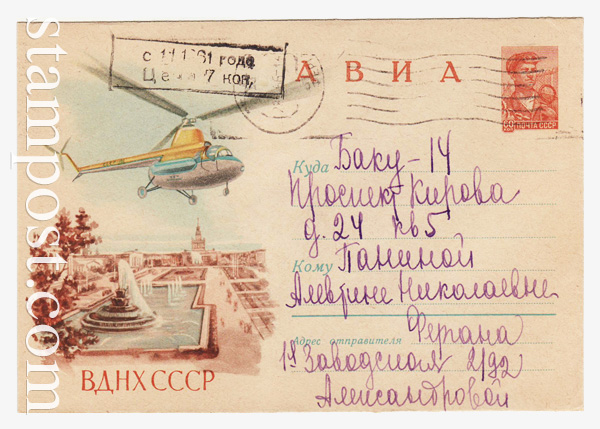 stampost.com
с 1.1.1961 года
Цена 7 коп.
АВИА
ПОЧТА СССР
Куда Баку-14
Проспект Кирова
д. 24 кв 5
Кому Паниной
Алевтине Николаевне
Адрес отправителя Ферана
1я Заводская
Александровой
ВДНХ СССР